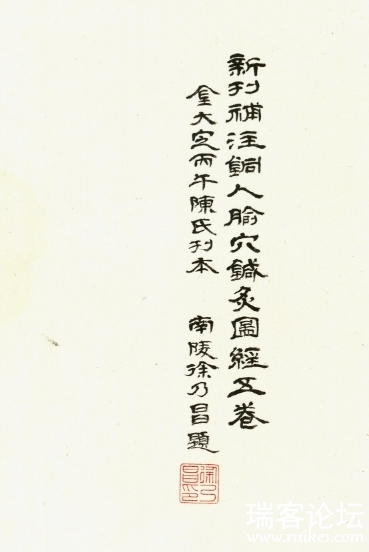 新刊補注銅人腧穴鍼灸圖經五卷
金大定丙午陳氏刊本 南陵徐乃昌題
徐乃昌印
瑞客论坛
www.ruike1.com